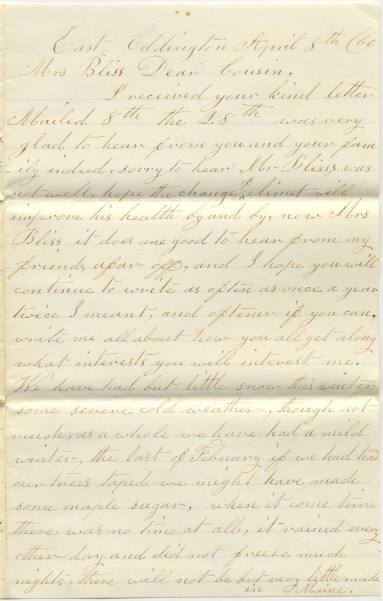 East Eddington April 8th /66
Mrs Bliss Dear Cousin,
I received your kind letter
Mailed 8th the 28th was very
glad to hear from you and your fam
ily indeed, sorry to hear Mr Blisss was
not well, hope the change climet will
improve his health by and by, now Mrs
Bliss it does me good to hear from my
friends afar off, and I hope you will
continue to write as often as once a year
twice I meant, and oftener if you can,
write me all about how you all get along
what interests you will interest me.
We have had but little snow this winter
some severe cold weather, though not
much, as a whole we have had a mild
winter, the last of Febuary if we had had
our trees taped we might have made
some maple sugar, when it come time
there was no time at all, it rained every
other day and did not freeze much
nights, there will not be but very little made
in Maine.